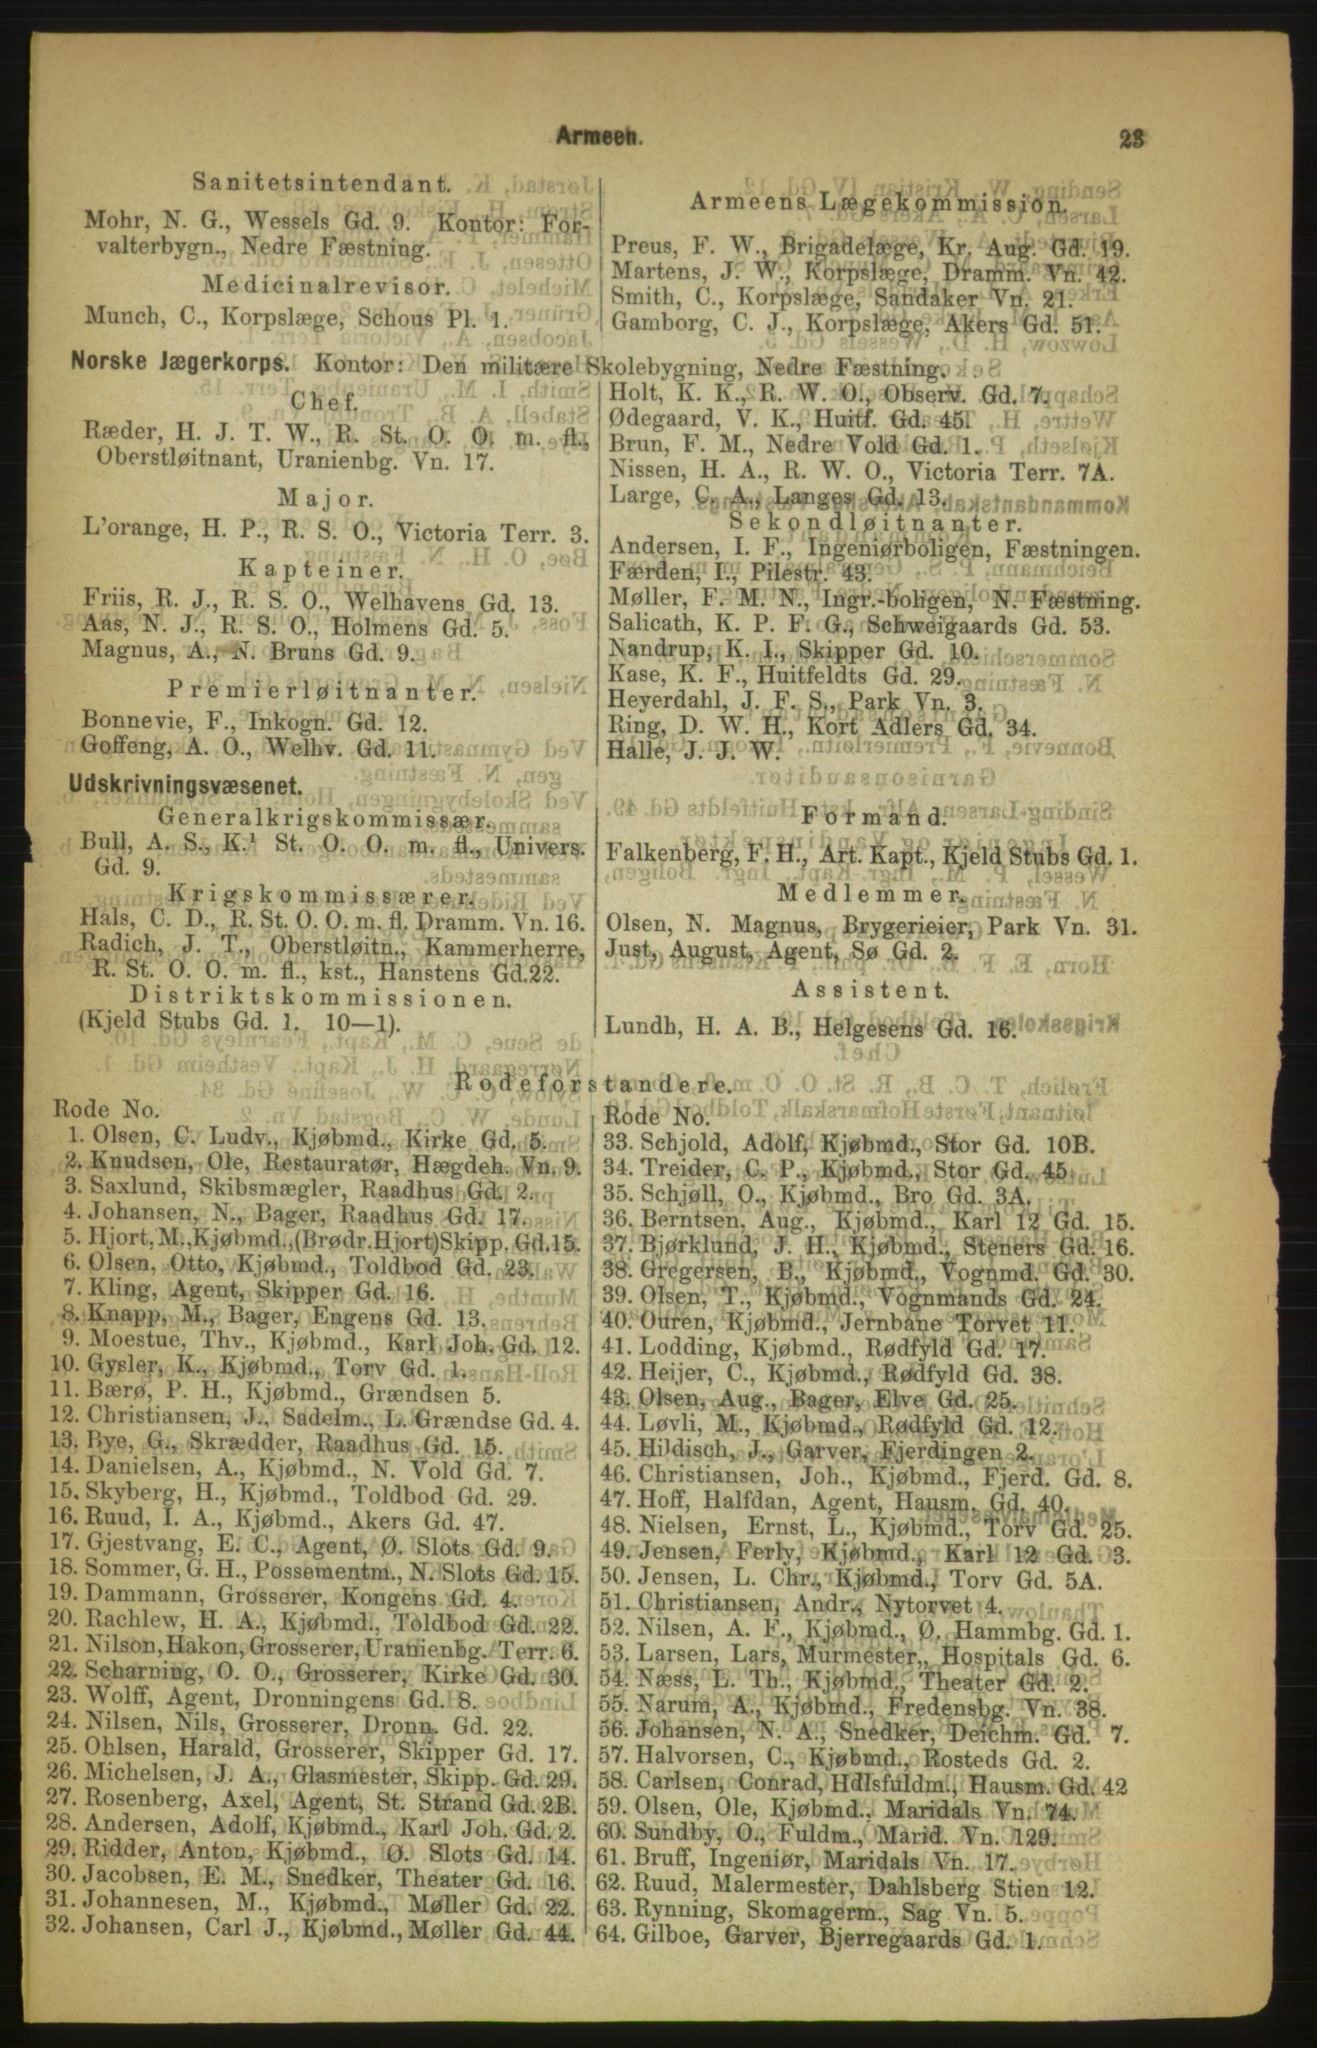 Armeen.
23
Sanitetsintendant.
Mohr, N. G., Wessels Gd. 9. Kontor: For-
valterbygn., Nedre Fæstning.
Medicinalrevisor.
Munch, C., Korpslæge, Schous Pl. 1.
Armeens Lægekommission.
Preus, F. W., Brigadelæge, Kr. Aug. Gd. 19.
Martens, J. W., Korpslæge, Dramm. Vn. 42.
Smith, C., Korpslæge, Sandaker Vn. 21.
Gamborg, C. J., Korpslæge, Akers Gd. 51.
Norske Jægerkorps. Kontor: Den militære Skolebygning, Nedre Fæstning.
Chef.
Ræder, H. J. T. W., R. St. O. O. m. fl.,
Oberstløitnant, Uranienbg. Vn. 17.
Major.
L'orange, H. P., R. S. O., Victoria Terr. 3.
Kapteiner.
Friis, R. J., R. S. O., Welhavens Gd. 13.
Aas, N. J., R. S. O., Holmens Gd. 5.
Magnus, A., N. Bruns Gd. 9.
Premierløitnanter.
Bonnevie, F., Inkogn. Gd. 12.
Goffeng, A. O., Welhv. Gd. 11.
Holt, K. K., R. W. O., Observ. Gd. 7.
Ødegaard, V. K., Huitf. Gd. 45.
Brun, F. M., Nedre Vold Gd. 1.
Nissen, H. A., R. W. O., Victoria Terr. 7A.
Large, C. A., Langes Gd. 13.
Sekondløitnanter.
Andersen, I. F., Ingeniørboligen, Fæstningen.
Færden, I., Pilestr. 43.
Møller, F. M. N., Ingr.-boligen, N. Fæstning.
Salicath, K. P. F. G., Schweigaards Gd. 53.
Nandrup, K. I., Skipper Gd. 10.
Kase, K. F., Huitfeldts Gd. 29.
Heyerdahl, J. F. S., Park Vn. 3.
Ring, D. W. H., Kort Adlers Gd. 34.
Halle, J. J. W.
Udskrivningsvæsenet.
Generalkrigskommissær.
Bull, A. S., K.¹ St. O. O. m. fl., Univers.
Gd. 9.
Krigskommissærer.
Hals, C. D., R. St. O. O. m. fl. Dramm. Vn. 16.
Radich, J. T., Oberstløitn., Kammerherre,
R. St. O. O. m. fl., kst., Hanstens Gd. 22.
Distriktskommissionen.
(Kjeld Stubs Gd. 1. 10—1).
Formand.
Falkenberg, F. H., Art. Kapt., Kjeld Stubs Gd. 1.
Medlemmer.
Olsen, N. Magnus, Brygerieier, Park Vn. 31.
Just, August, Agent, Sø Gd. 2.
Assistent.
Lundh, H. A. B., Helgesens Gd. 16.
Rodeforstandere.
Rode No.
1. Olsen, C. Ludv., Kjøbmd., Kirke Gd. 5.
2. Knudsen, Ole, Restauratør, Hægdeh. Vn. 9.
3. Saxlund, Skibsmægler, Raadhus Gd. 2.
4. Johansen, N., Bager, Raadhus Gd. 17.
5. Hjort, M., Kjøbmd., (Brødr. Hjort) Skipp. Gd. 15.
6. Olsen, Otto, Kjøbmd., Toldbod Gd. 23.
7. Kling, Agent, Skipper Gd. 16.
8. Knapp, M., Bager, Engens Gd. 13.
9. Moestue, Thv., Kjøbmd., Karl Joh. Gd. 12.
10. Gysler, K., Kjøbmd., Torv Gd. 1.
11. Bærø, P. H., Kjøbmd., Grændsen 5.
12. Christiansen, J., Sadelm., L. Grændse Gd. 4.
13. Bye, G., Skrædder, Raadhus Gd. 15.
14. Danielsen, A., Kjøbmd., N. Vold Gd. 7.
15. Skyberg, H., Kjøbmd., Toldbod Gd. 29.
16. Ruud, I. A., Kjøbmd., Akers Gd. 47.
17. Gjestvang, E. C., Agent, Ø. Slots Gd. 9.
18. Sommer, G. H., Possementm., N. Slots Gd. 15.
19. Dammann, Grosserer, Kongens Gd. 4.
20. Rachlew, H. A., Kjøbmd., Toldbod Gd. 22.
21. Nilson, Hakon, Grosserer, Uranienbg. Terr. 6.
22. Scharning, O. O., Grosserer, Kirke Gd. 30.
23. Wolff, Agent, Dronningens Gd. 8.
24. Nilsen, Nils, Grosserer, Dronn. Gd. 22.
25. Ohlsen, Harald, Grosserer, Skipper Gd. 17.
26. Michelsen, J. A., Glasmester, Skipp. Gd. 29.
27. Rosenberg, Axel, Agent, St. Strand Gd. 2B.
28. Andersen, Adolf, Kjøbmd., Karl Joh. Gd. 2.
29. Ridder, Anton, Kjøbmd., Ø. Slots Gd. 14.
30. Jacobsen, E. M., Snedker, Theater Gd. 16.
31. Johannesen, M., Kjøbmd., Møller Gd. 22.
32. Johansen, Carl J., Kjøbmd., Møller Gd. 44.
Rode No.
33. Schjold, Adolf, Kjøbmd., Stor Gd. 10B.
34. Treider, C. P., Kjøbmd., Stor Gd. 45.
35. Schjøll, O., Kjøbmd., Bro Gd. 3A.
36. Berntsen, Aug., Kjøbmd., Karl 12 Gd. 15.
37. Bjørklund, J. H., Kjøbmd., Steners Gd. 16.
38. Gregersen, B., Kjøbmd., Vognmd. Gd. 30.
39. Olsen, T., Kjøbmd., Vognmands Gd. 24.
40. Ouren, Kjøbmd., Jernbane Torvet 11.
41. Lodding, Kjøbmd., Rødfyld Gd. 17.
42. Heijer, C., Kjøbmd., Rødfyld Gd. 38.
43. Olsen, Aug., Bager, Elve Gd. 25.
44. Løvli, M., Kjøbmd., Rødfyld Gd. 12.
45. Hildisch, J., Garver, Fjerdingen 2.
46. Christiansen, Joh., Kjøbmd., Fjerd. Gd. 8.
47. Hoff, Halfdan, Agent, Hausm. Gd. 40.
48. Nielsen, Ernst, L., Kjøbmd., Torv Gd. 25.
49. Jensen, Ferly, Kjøbmd., Karl 12 Gd. 3.
50. Jensen, L. Chr., Kjøbmd., Torv Gd. 5A.
51. Christiansen, Andr., Nytorvet 4.
52. Nilsen, A. F., Kjøbmd., Ø. Hammbg. Gd. 1.
53. Larsen, Lars, Murmester, Hospitals Gd. 6.
54. Næss, L. Th., Kjøbmd., Theater Gd. 2.
55. Narum, A., Kjøbmd., Fredensbg. Vn. 38.
56. Johansen, N. A., Snedker, Deichm. Gd. 7.
57. Halvorsen, C., Kjøbmd., Rosteds Gd. 2.
58. Carlsen, Conrad, Hdlsfuldm., Hausm. Gd. 42
59. Olsen, Ole, Kjøbmd., Maridals Vn. 74.
60. Sundby, O., Fuldm., Marid. Vn. 129.
61. Bruff, Ingeniør, Maridals Vn. 17.
62. Ruud, Malermester, Dahlsberg Stien 12.
63. Rynning, Skomagerm., Sag Vn. 5.
64. Gilboe, Garver, Bjerregaards Gd. 1.